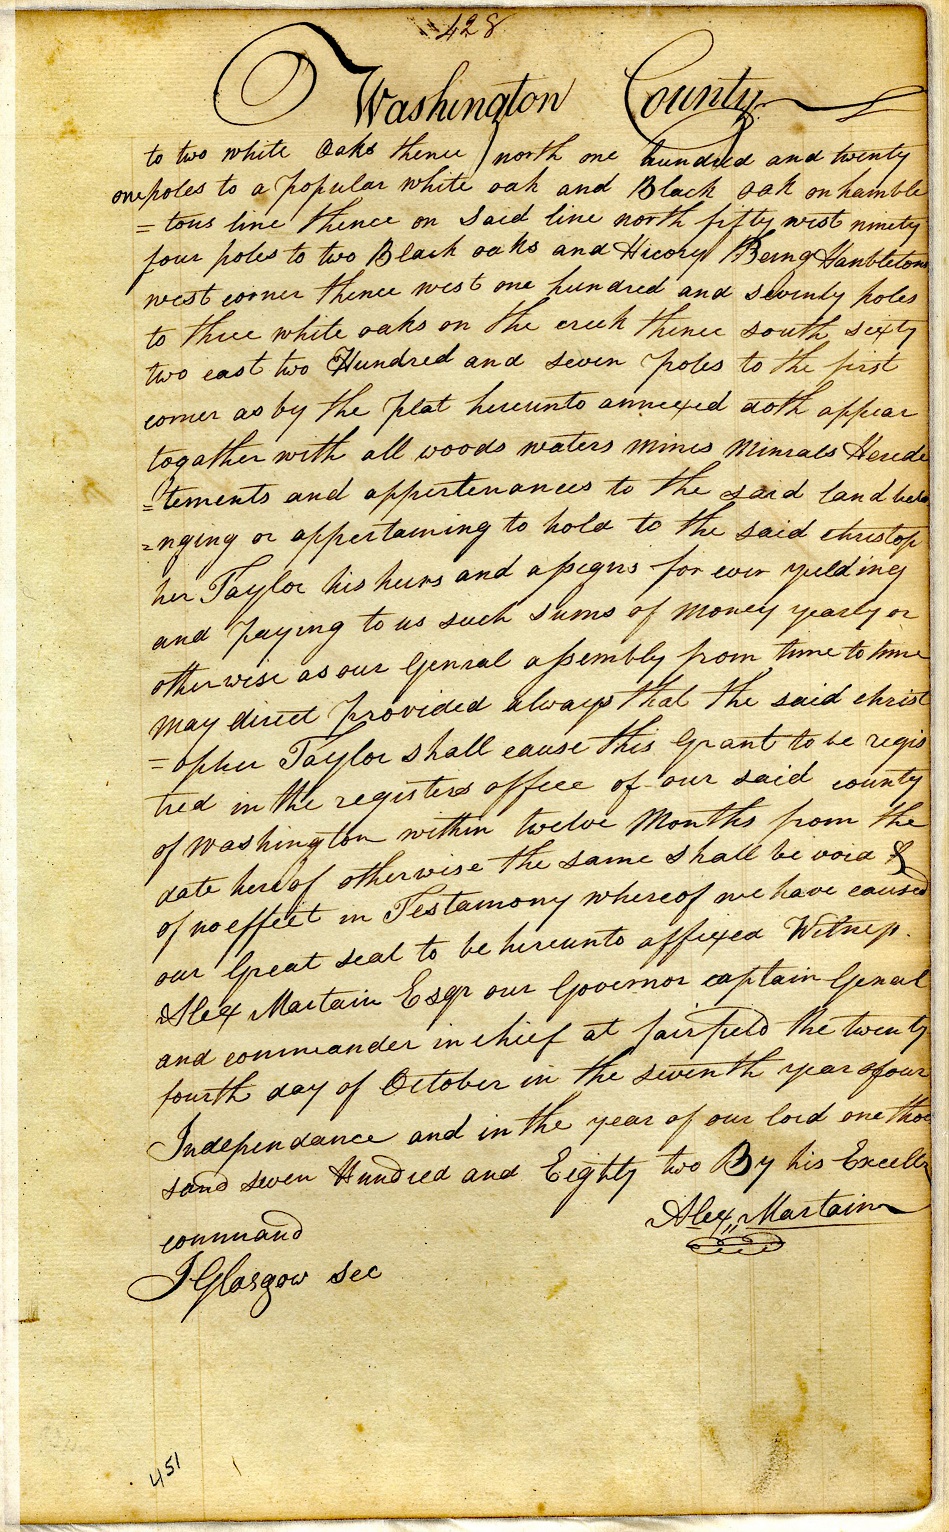 428
Washington County
to two white Oaks thence north one hundred and twenty
one poles to a popular white oak and Black oak on hamble
=tons line thence on Said line north fifty west ninety
four poles to two Black oaks and Hicory Being Hambletons
west corner thence west one hundred and seventy poles
to three white oaks on the creek thence south sixty
two east two Hundred and seven poles to the first
corner as by the plat hereunto annexed doth appear
togather with all woods waters mines Minrals Herede
=tements and appertenances to the said land belo
=nging or appertaining to hold to the said christop
her Taylor his heirs and assigns for ever yulding
and paying to us such sums of money yearly or
otherwise as our Genral assembly from time to time
may direct provided always that the said christ
=opher Taylor shall cause this Grant to be regis
tred in the registers office of our said county
of Washington within twelve Months from the
date hereof otherwise the same shall be void &
of no effect in Testamony whereof we have caused
our Great seal to be hereunto affixed Witness.
Alex Martain Esqr our Governor captain Genral
and commander in chief at fairfield the twenty
fourth day of October in the seventh year of our
Independance and in the year of our lord one thou
sand seven Hundred and Eighty two By his Excelly
command
Alex,, Martain
J Glasgow Sec
451